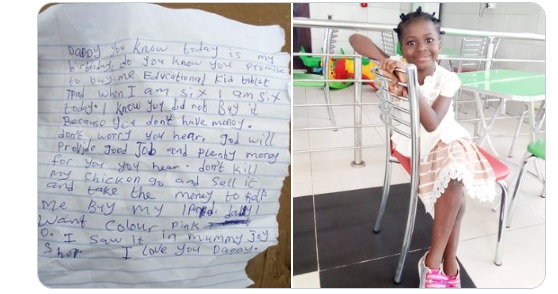 DaDDy you know today is my
birthday do you know you promise
to buy me Educational kid tablet
Ipad when I am six I am six
today. I know you did not buy it
Because you don't have money.
don't worry you hear. God will
Provide good Job and plenty money
for you you hear. don't kill
my chicken go and sell it
and take the money to
me Buy my Ipad daddy I
Want Colour pink
O. I saw it in mummy Joy
Shop. I love you Daddy.